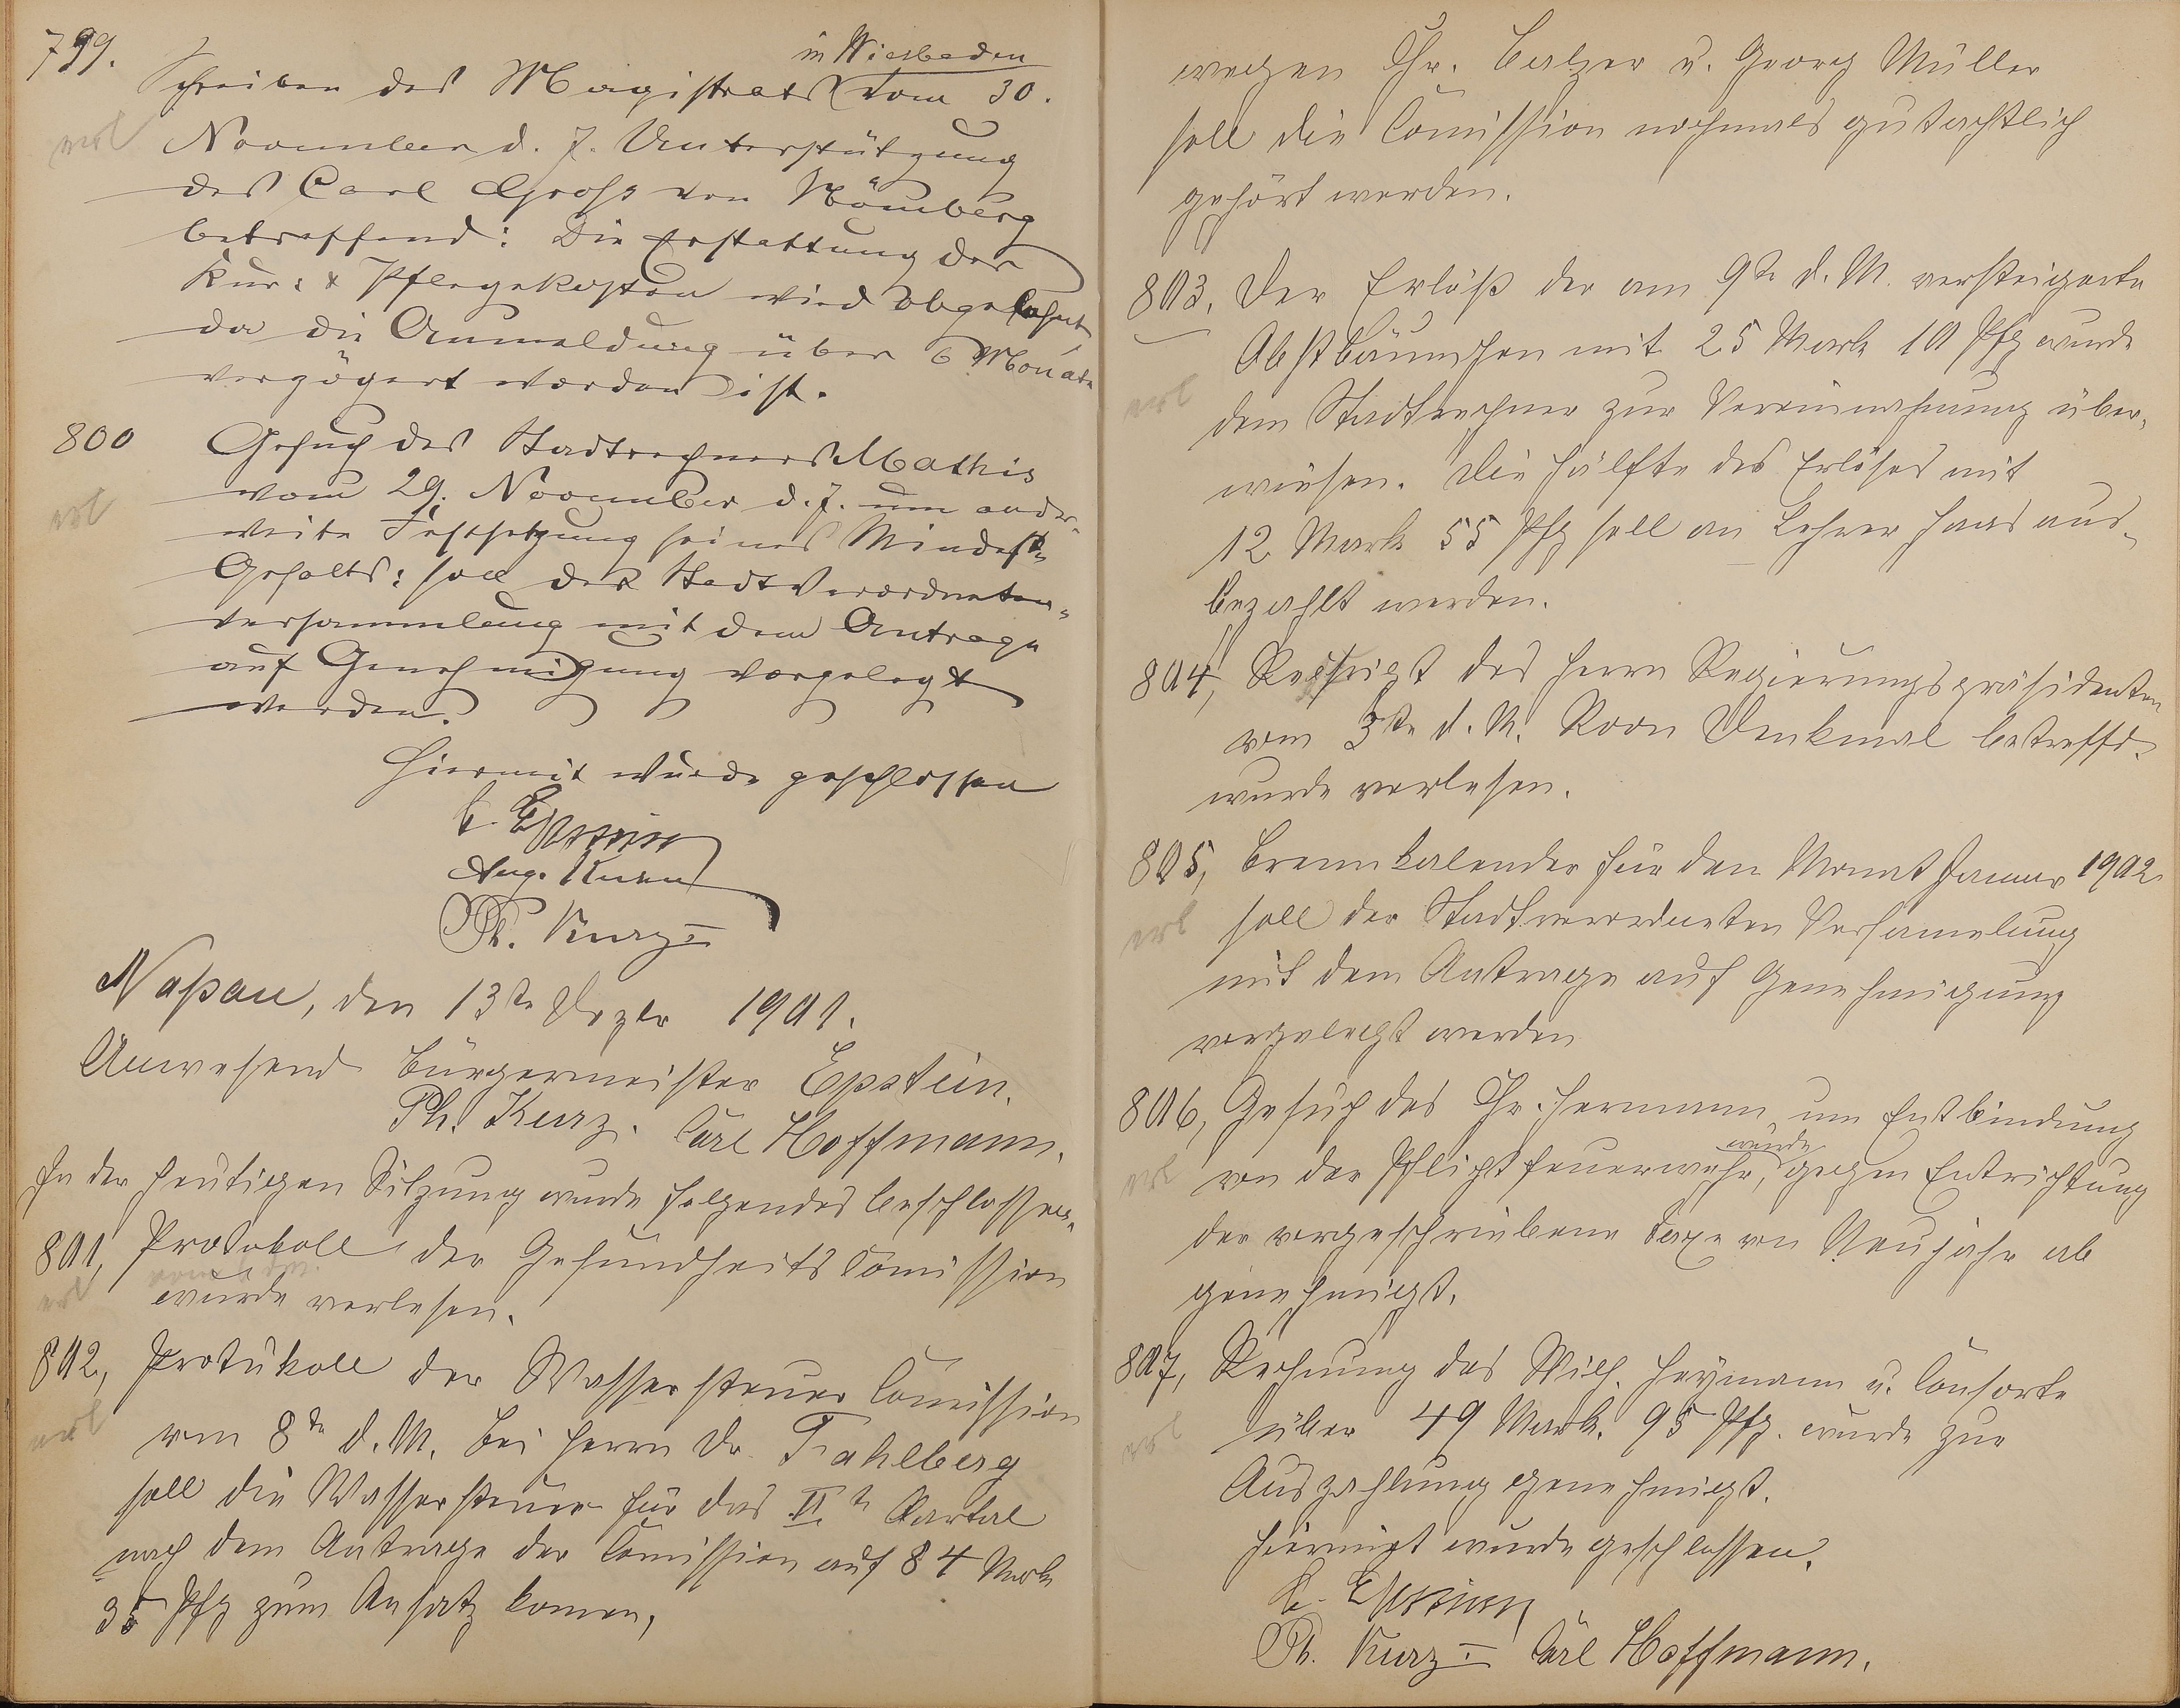 799.
in Wiesbaden
Schreiben des Magistrats vom 30.
erl
November d. J. Unterstützung
des Carl Groß von Nömberg
betreffend: Die Erstattung der
Kur: & Pflegekosten wird abgelehnt,
da die Anmeldung über 6 Monate
verzögert worden ist.
800
Gesuch des Stadtrechners Mathis
erl
vom 29. November d. J. um ander-
weite Festsetzung seines Mindest-
Gehalts: soll der Stadtverordneten-
versammlung mit dem Antrage
auf Genehmigung vorgelegt
werden.
Hiermit wurde geschlossen
E. Epstein
Aug.
Ph. Kurz I
Naßau, den 13te Dezbr 1901.
Anwesend Bürgermeister Epstein.
Ph. Kurz. Carl Hoffmann.
In der heutigen Sitzung wurde folgendes beschlossen.
801, Protokoll der Gesundheits Com̄ission
erl
wurde verlesen.
802, Protukoll der Wassersteuer Com̄ission
erl
vom 8te d. M. bei Herrn Dr. Fahlberg
soll die Wassersteuer für das II.te Quartal
nach dem Antrage der Com̄ission auf 84 Mark
35 Pfg zum Ansatz komen,
wegen Chr. Balzer u. Georg Müller
soll die Com̄ission nochmals gutachtlich
gehört werden.
803, Der Erlöß der am 9te d. M. versteigerte
Obstbäumchen mit 25 Mark 10 Pfg wurde
erl
dem Stadtrechner zur Vereinnahmung über-
wiesen. Die Hälfte des Erlöses mit
12 Mark 55 Pfg soll an Lehrer Haas aus-
bezahlt werden.
804, Rescript des Herrn Regierungspräsidenten
vom 3te d. M. Roon Denkmal betreffd.
wurde verlesen.
805, Brennkalender für den Monat Januar 1902
erl
soll der Stadtverordneten Versamelung
mit dem Antrage auf Genehmigung
vorgelegt werden
806, Gesuch des Chr. Hermann um Entbindung
wurde
erl
von der Pflichtfeuerwehr, gegen Entrichtung
der vorgeschriebene Taxe von Neujahr ab
genehmigt.
807, Rechnung des Wilh. Heymann u. Consorte
erl
über 49 Mark. 95 Pfg. wurde zur
Auszahlung genehmigt.
Hiermit wurde geschlossen.
E. Epstein
Ph. Kurz I Carl Hoffmann.